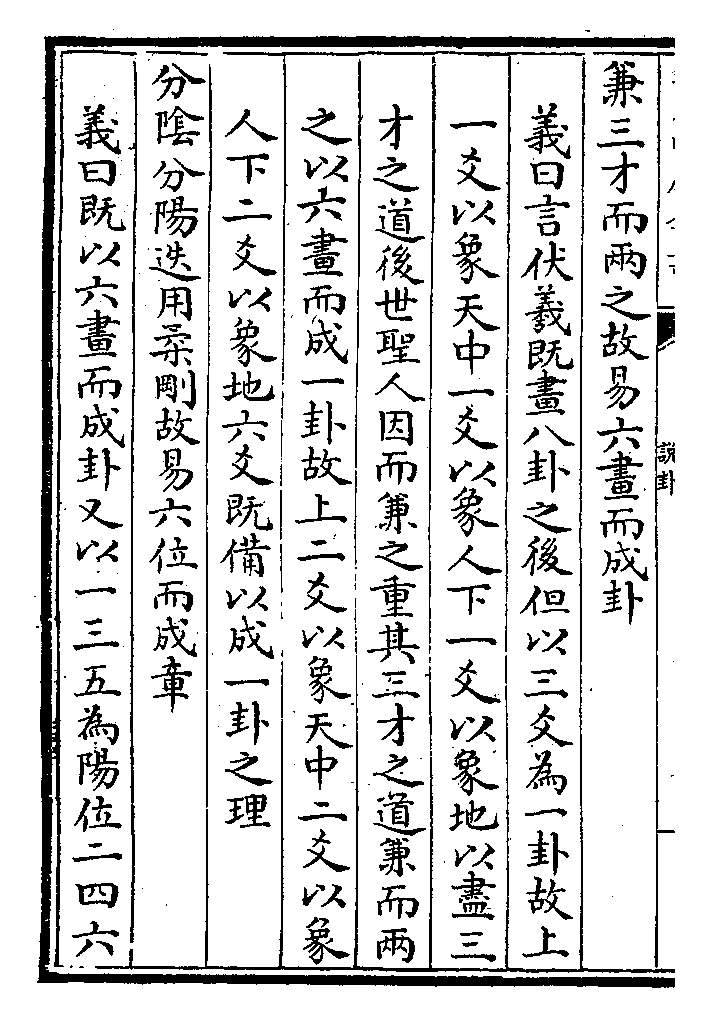 兼三才而兩之故易六畫而成卦
義曰言伏羲既畫八卦之後但以三爻為一卦故上
一爻以象天中一爻以象人下一爻以象地以盡三
才之道後世聖人因而兼之重其三才之道兼而兩
之以六畫而成一卦故上二爻以象天中二爻以象
人下二爻以象地六爻既備以成一卦之理
分陰分陽迭用柔剛故易六位而成章
義曰既以六畫而成卦又以一三五為陽位二四六
說卦